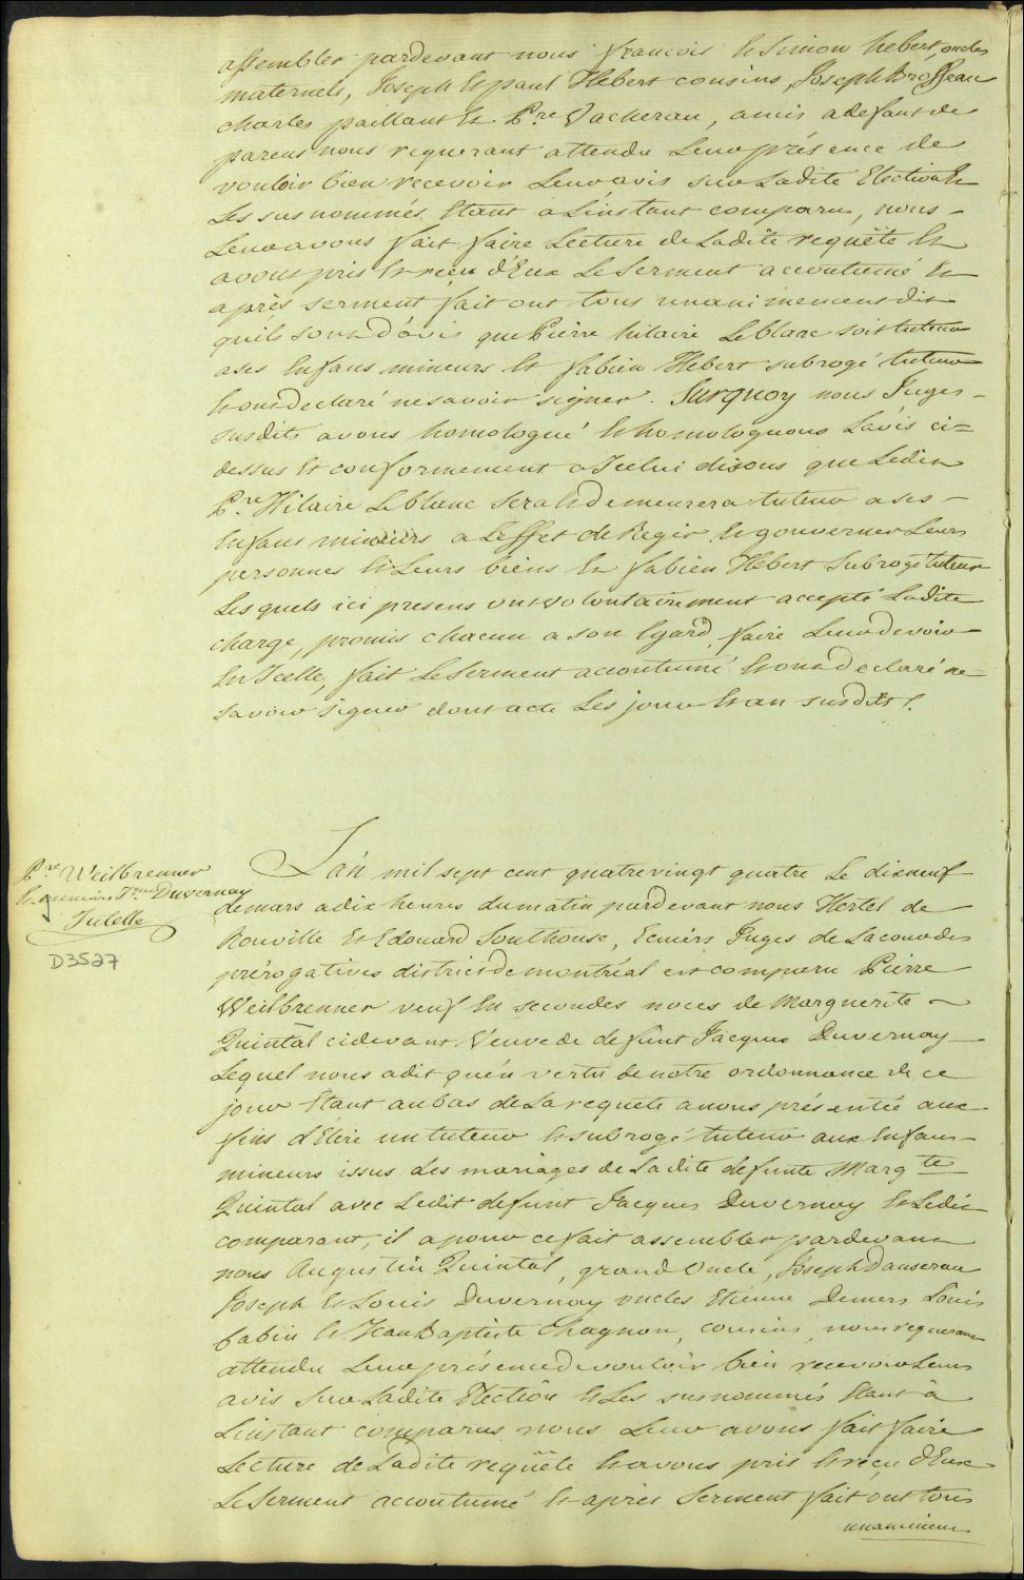 assembler pardevant nous francois et Simon hebert, oncles
maternels, Joseph et paul Hebert cousins, Joseph Brosseau
charles paillant et P.re Vacherau, amis adefaut de
parens nous requerant attendu Leur présence de
vouloir bien recevoir Leur avis sur Ladite Election et
Les sus nommés Etant a L'instant comparu, nous -
Leur avons fait faire Lecture de Ladite requête et
avons pris et reçu d'Eux Le Serment accoutumé et
après serment fait ont tous unanimement dit
quils sont d'avis que Pierre hilaire Leblanc soit tuteur
a ses Enfans mineurs et fabien Hebert subrogé tuteur
et ont declaré ne savoir signer. Surquoy nous Juges -
susdits avons homologué et homologuons L'avis ci=
dessus et conformement a Icelui disons que Ledit
P.re Hilaire Leblanc sera et demeurera tuteur a ses -
Enfans mineurs a L'effet de Regir et gouverner Leurs
personnes et Leurs biens et fabien Hebert Subrogé tuteur
Les quels ici presens ont volontairement accepté Ladite
charge, promis chacun a son Egard, faire Leur devoir
En Icelle, fait Le Serment accoutumé et ont declaré ne -
savoir signer dont acte Les jour et an susdits ./.
P.re Weilbrenner
et mineurs Duvernay
Tutelle
D3527
L'an mil sept cent quatrevingt quatre Le dixneuf
de mars a dix heures du matin pardevant nous Hertel de
Rouville et Edouard Southouse, Ecuiers Juges de La cour des
prérogatives district de montréal est comparu Pierre
Weilbrenner veuf En secondes noces de Marguerite
Quintal cidevant Veuve de defunt Jacques Duvernay
Lequel nous a dit qu'en vertu de notre ordonnance de ce
jour Etant au bas de La requete a nous présentée aux
fins d'Elire un tuteur et subrogé tuteur aux Enfans -
mineurs issus des mariages de Ladite defunte Marg te
Quintal avec Ledit defunt Jacques Duvernay et Ledit
comparant, il a pour ce fait assembler pardevant
nous Augustin Quintal, grand Oncle, Joseph Dansereau
Joseph et Louis Duvernay oncles Etienne Demers Louis
babin et Jean Baptiste Chagnon, cousins, nous requerant
attendu Leur présence de vouloir bien recevoir Leurs
avis sur Ladite Election et Les susnommés Etant à
L'instant comparus nous Leur avons fait faire
Lecture de Ladite requête et avons pris et reçu d'Eux
Le Serment accoutumé et après Serment fait ont tous
unanimem